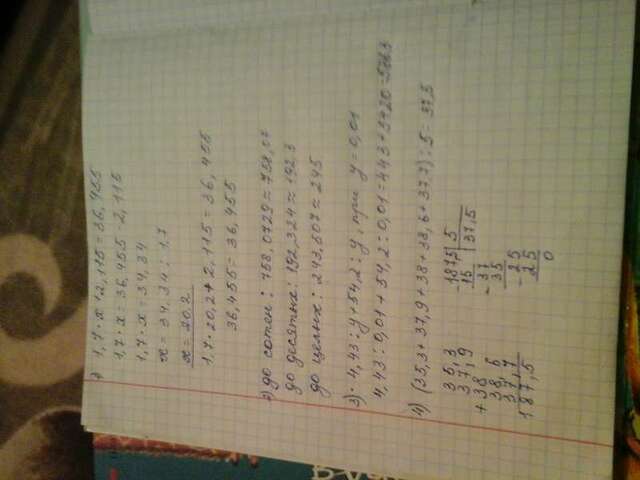 1) 1,7·x+2,115=36,455
1,7·x=36,455-2,115
1,7·x=34,34
x=34,34:1,7
x=20,2
1,7·20,2+2,115=36,455
36,455=36,455
2) до сотен: 758,0729≈758,07
до десятых: 192,324≈192,3
до целых: 243,507≈245
3) 4,43:y+54,2:y, при y=0,01
4,43:0,01+54,2:0,01=443+5420=5863
4) (35,3+37,9+38+38,6+37,7):5=37,5
35,3
37,9
+38
38,6
37,7
187,5
-187,5 5
15 37,5
-37
35
-25
25
0